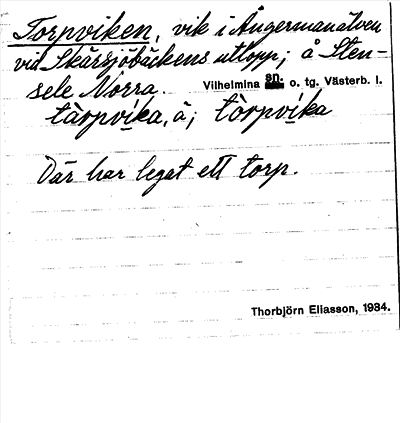 Torpviken, vik i Ångermanälven
vid Skärsjöbäckens utlopp; å Sten-
sele Norra. Vilhelmina sn. o. tg. Västerb. l.
tòrpvíka, ä; tòrpvíka
Där har legat ett torp.
Thorbjörn Eliasson, 1934.